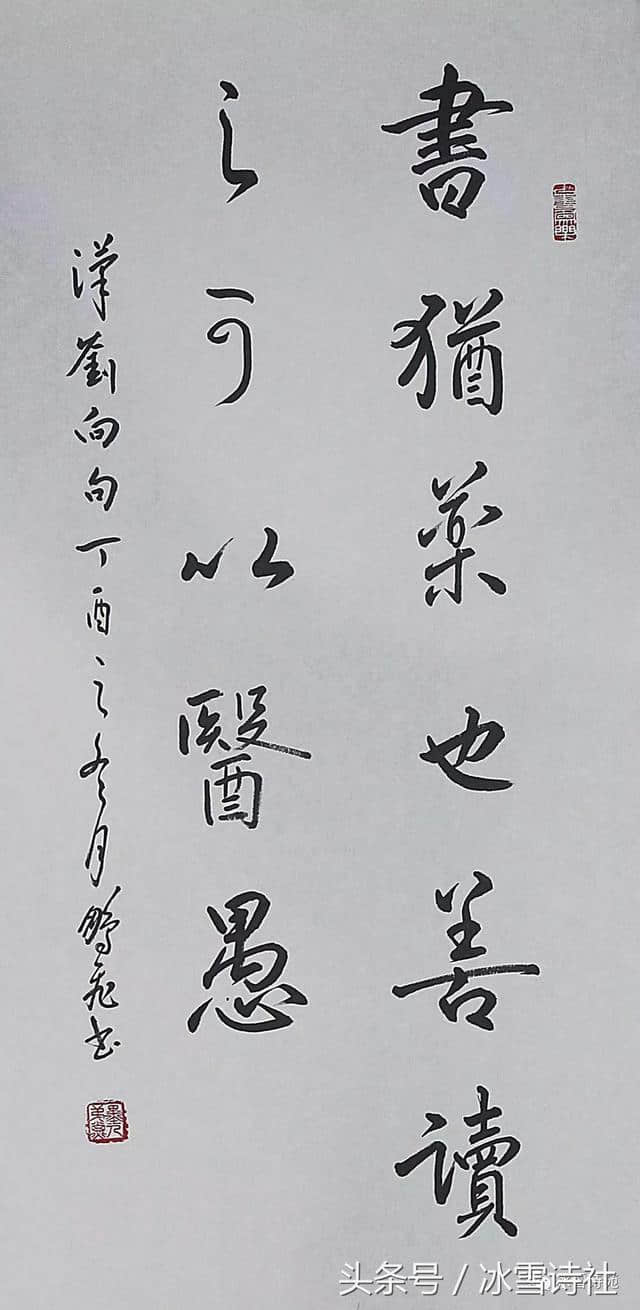 書猶藥也善讀
之可以醫愚
漢劉向句丁酉之冬月鵬飛书
头条号／冰雪诗社